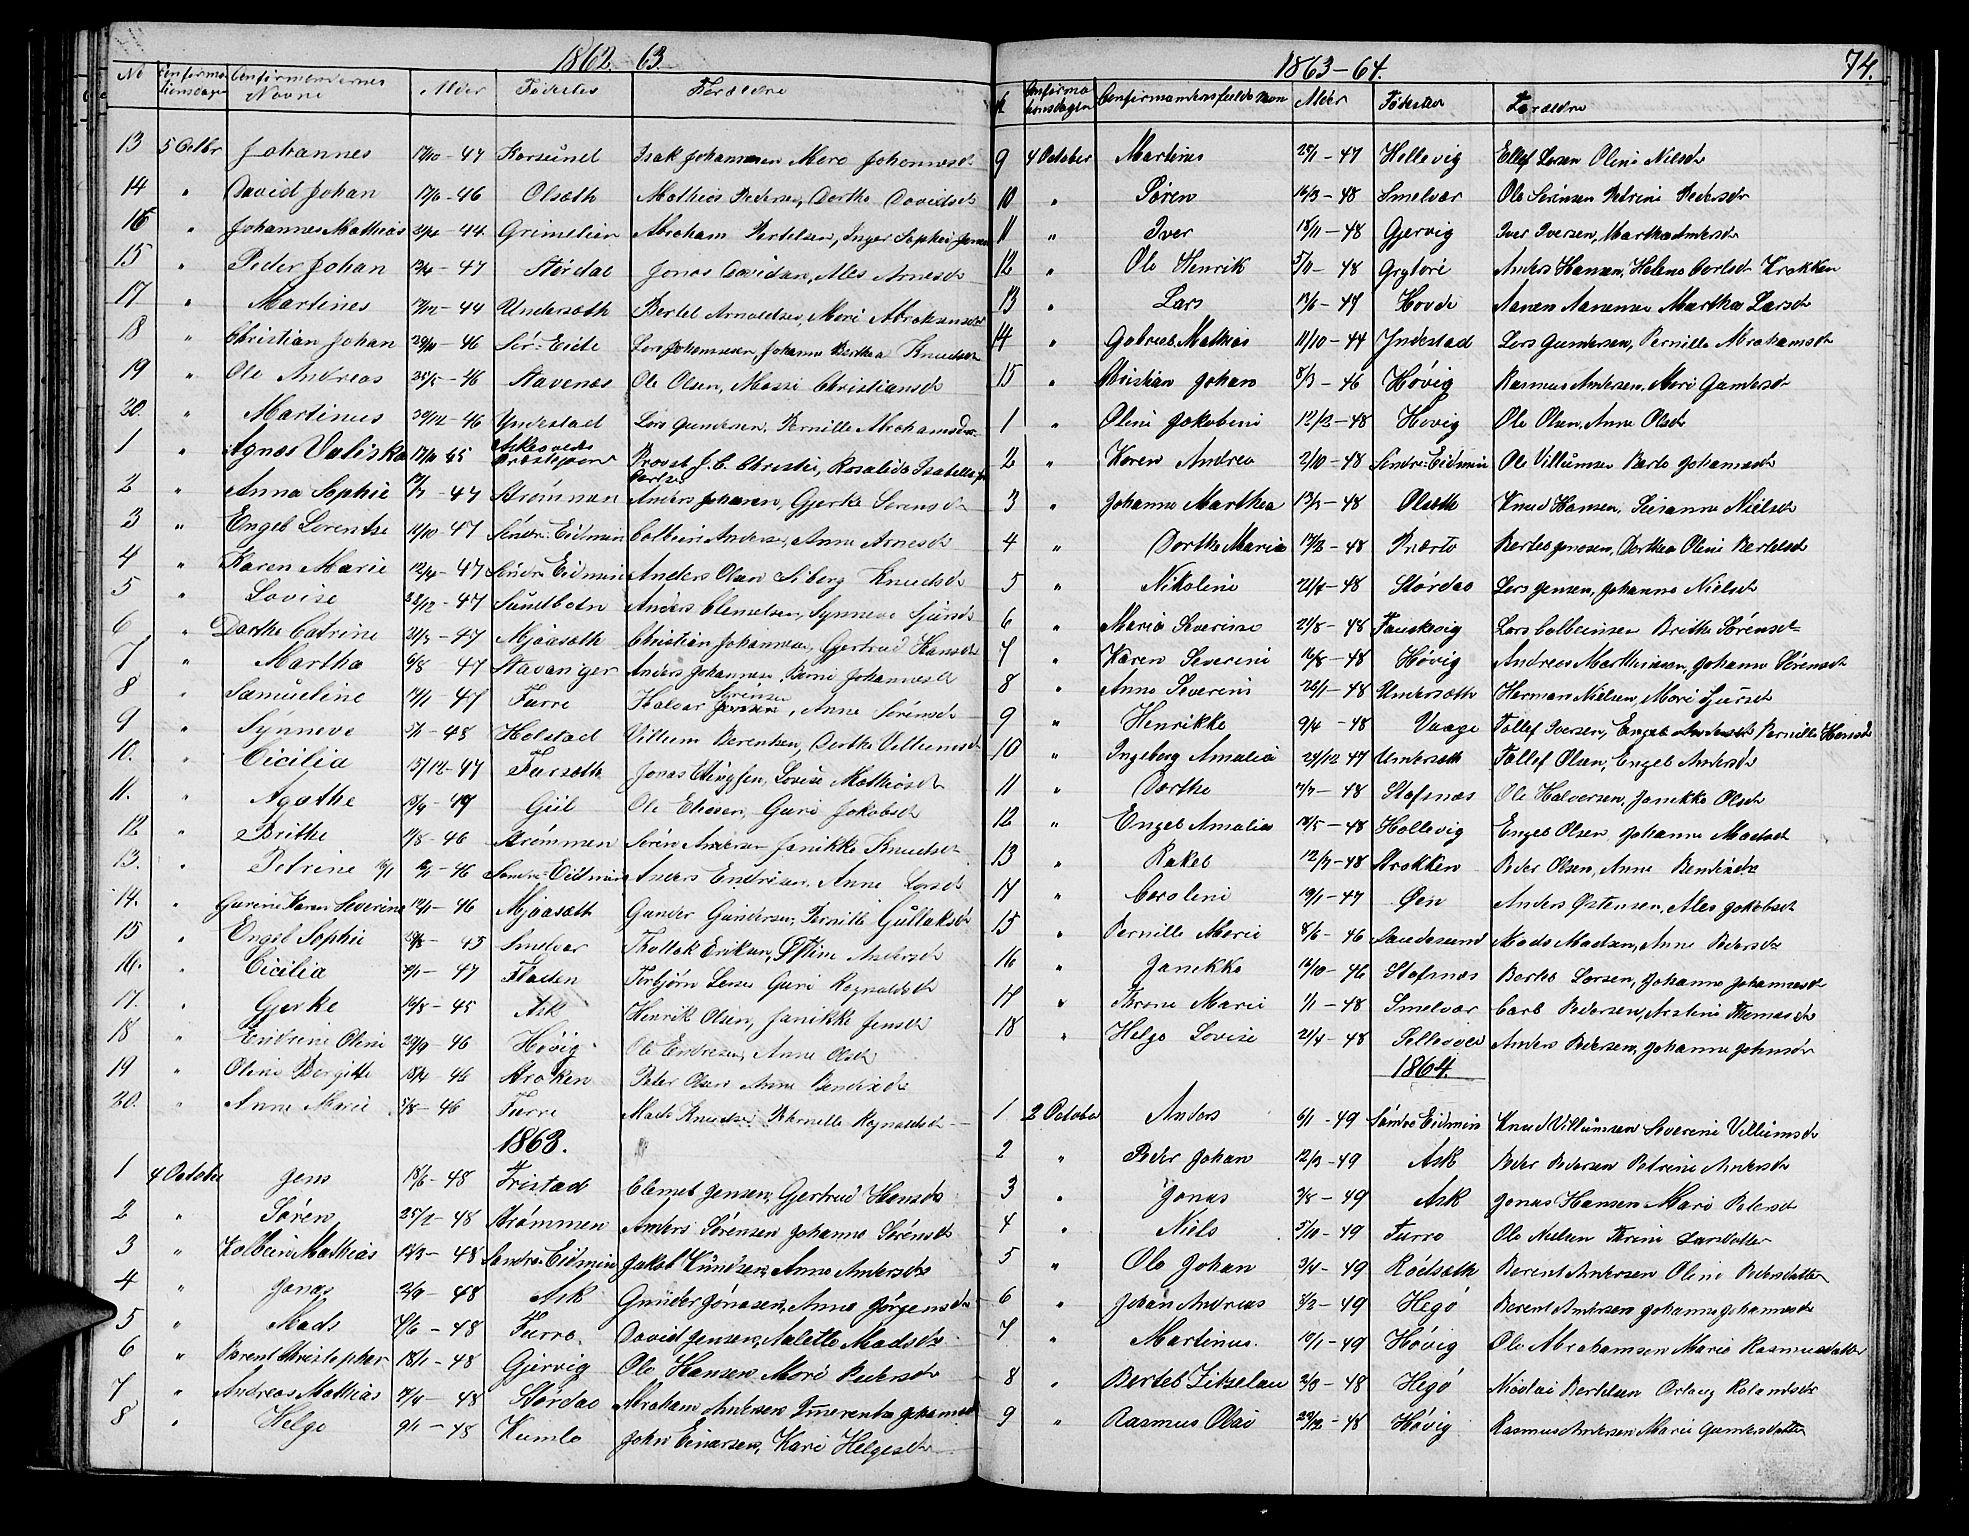 1862. 63.
No Confirmationsdagen Confirmandernes Navne Alder Fødested Forældre
13 5 Octbr Johannes 17/10-47 Korssund Isak Johannesen Mari Johannesdt
14 " David Johan 17/6-46 Olsæth Mathias Pedersen, Dorthe Davidsdt
16 " Johannes Mathias 44 Grimelien Abraham Bertelsen, Inger Sophie
15 " Peder Johan 47 Stordal Jonas Davidsen, Ales Arnesdt
17 " Martines 44 Undersæth Bertel Arnoldsen, Mari Abrahamsdt
18 " Christian Johan 46 Sør-Eide Lars Johannesen, Johanne Berthea Knudsdt
19 " Ole Andreas 46 Stavenes Ole Olsen, Massi Christiansdt
20. " Martinus 30/12-46 Yndestad Lars Gundersen, Pernille Abrahamsdt
1 " Agnes Valeska 45 Askevolds Præstegaard Provst J. C. Christie, Rosalide Isabella
2 " Anna Sophie 47 Strømmen Anders Johansen, Gjerke Sørensdt
3 " Engel Lorentse 11/10-47 Søndre-Eidmin Colbein Andersen, Anne Arnesdt
4 " Karen Marie 12/4-47 Søndre Eidmin Anders Olsen Siborg Knudsdt
5 " Lovise 23/12-47 Sundbotn Anders Clemetsen, Synneve
6 " Dorthe Catrine 47 Mjaasæth Christian Johannesen, Gjertrud Hansdt
7 " Martha 6/8-47 Stavanger Anders Johannesen, Berni Johannesdt
8 " Samueline 47 Furre Halvor Syrensen, Anne Sørensdt
9 " Synneve 48 Holstad Villum Berentsen, Dorthe Villumsdt
10. " Cicilia 15/12-47 Fursæth Jonas Elingsen, Lovise Mathiasdt
11. " Agathe 47 Giil Ole Eliasen, Guri Jakobsdt
12 " Brithe 46 Strømmen Søren Andersen Janikke Knudsdt
13. " Petrine 46 Søndre-Eidmin Anders Endresen, Anne Larsdt
14. " Gurine Karen Severine 46 Mjaasæth Gunder Gundersen, Pernille Guttaksdt
15 " Engel Sophie 45 Smelvær Thollak Eriksen, Østine Andersdt
16. " Cicilia 47 Fladen Torbjørn Larsen Guri Ragnaldsdt
17. " Gjerke 16/8-45 Ask Henrik Olsen, Janikke Jensdt
18 " Endrine Oline 46 Høvig Ole Endresen, Anne Olsdt
19 " Oline Birgitte 18/4-46 Kroken Peter Olsen Anne Bendixdt
20. " Anne Marie 46 Furre Mads Knudsen, Pernille Ragnaldsdt
1863.
1 4 October Jens 18/6-48 Fristad Clemet Jensen, Gjertrud Hansdt
2 " Søren 25/2-48 Strømmen Anders Sørensen Johanne Sørensdt
3 " Kolbein Mathias 48 Søndre-Eidmin Jakob Knudsen, Anne Andersdt
4 " Jonas 48 Ask Gunder Jonasen, Anne Jørgensdt
5 " Mads 48 Furre. David Jensen, Malette Madsdt
6 " Berent Christopher 18/1-48 Gjervig Ole Hansen Mari Pedersdt
7 " Andreas Mathias 48 Stordal Abraham Andersen Imerentse
8 " Helge 9/1-48 Kumle John Einersen, Kari Helgesdt
1863-64. 74.
Confirmationsdagen Confirmandens fulde Navn Alder Fødested Forældre
9 4 October Martinus 47 Hellevig Ellef Larsen Oline Nilsdt
10 " Søren 16/3-48 Smelvær Ole Sørensen Petrine Pedersdt
11 " Iver 18/11-48 Gjervig Iver Iversen, Martha Andersdt
12 " Ole Henrik 48 Grytøre Anders Hansen, Helene Carlsdt Krakken
13 " Lars 13/6-47 Hovde Aanen Aanensen Martha Larsdt
14 " Gabriel Mathias 11/10-44 Indestad Lars Gundersen, Pernille Abrahamsdt
15 " Christian Johan 8/3-46 Høvig Rasmus Andersen, Mari Gundersdt
1 " Oline Jakobine 12/12-48 Høvig Ole Olsen, Anne Olsdt
2 " Karen Andrea 2/10-48 Søndre-Eidmin Ole Villumsen Berte Johannesdt
3 " Johanne Marthea 13/3-48 Olsæth Knud Hansen, Susanne Nielsdt
4 " Dorthe Marie 48 Prærtø Bertel Jonsen, Dorthea Oline Bertelsdt
5 " Nikoline 21/4-48 Stordal Lars Jensen, Johanne Nielsdt
6 " Marie Severine 21/8-48 Fauskevig Lars Colbeinsen Brithe Sørensdt
7 " Karen Severine 16/8-48 Høvig Andreas Marthinsen, Johanne Sørensdt
8 " Anne Severine 26/1-48 Undersæth Herman Nielsen, Mari
9 " Henrikke 9/4-48 Vaage Tollef Iversen, Pernille Hansdt
10 " Ingeborg Amalia 24/12-47 Undersæth Tollef Olsen, Engel Andersdt
11 " Dorthe 48 Stafsnæs Ole Halversen, Janikke Olsdt
12 " Engel Amalia 48 Hellevig Engel Olsen Johanne Madsdt
13 " Rakel 12/3-48 Krokken Peder Olsen, Anne Bendixdt
14 " Caroline 19/1-47 Øen Anders Østensen, Ales Jakobsdt
15 " Pernille Marie 8/6-46 Sandøsund Mads Madsen, Anne Pedersdt
16 " Janikke 16/10-46 Stafsnæs Bertel Larsen, Johanne Johannesdt
17 " Trine Marie 1/1-48 Smelvær Carl Pedersen, Thomasdt
18 " Helge Lovise 21/4-48 Sellevold Anders Pedersen, Johanne Johnsdt
1864.
1 2 October Anders 6/1-49 Søndre Eidmin Knud Villumsen Severine Villumsdt
2 " Peder Johan 12/3-49 Ask Peder Pedersen Petrine Andersdt
3 " Jonas 3/8-49 Ask Jonas Hansen Mari Petersdt
4 " Niels 5/10-49 Furre Ole Nielsen Karine Larsdatter
5 " Ole Johan 49 Rødsæth Berent Andersen Oline Pedersdatter
6 " Johan Andreas 49 Hegø Berent Andersen Johanne Johannesdt
7 " Martinus. 49 Høvig Ole Abrahamsen Marie Rasmusdatter
8 " Bertel Zitzelau 48 Hegø Nicolai Bertelsen Rolandsdt
9 " Rasmus Olai 29/12-48 Høvig Rasmus Andersen Marie Gundersdatter